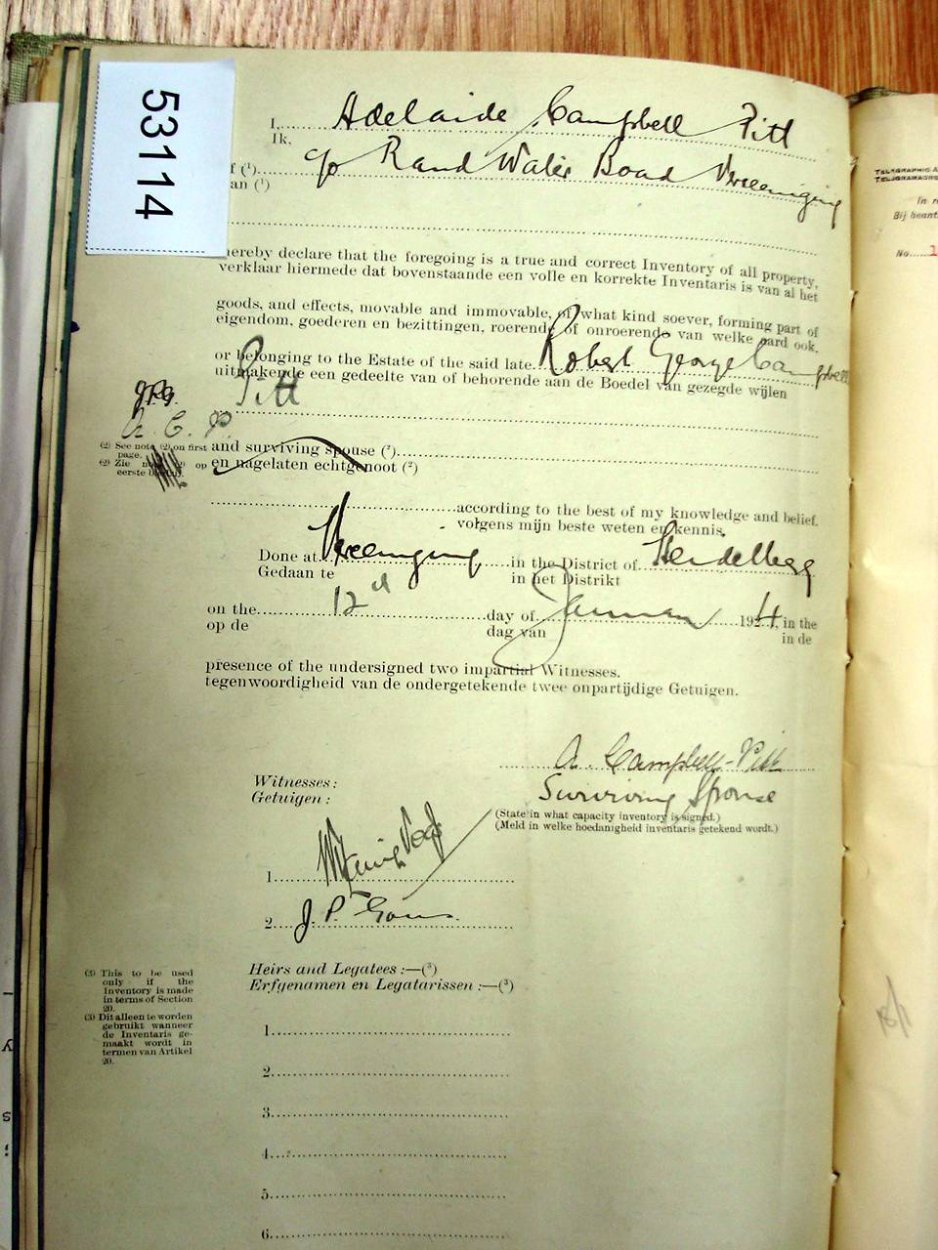 53114
I, Adelaide Campbell Pitt
Ik,
f (¹) c/o Rand Water Board Vereeniging
an (¹)
hereby declare that the foregoing is a true and correct Inventory of all property,
verklaar hiermede dat bovenstaande een volle en korrekte Inventaris is van al het
goods, and effects, movable and immovable, of what kind soever, forming part of
eigendom, goederen en bezittingen, roerende of onroerende van welke aard ook,
or belonging to the Estate of the said late Robert George Campbell
uitmakende een gedeelte van of behorende aan de Boedel van gezegde wijlen
Pitt
J.P.G.
A. C. P.
(2) See note (2) on first page.
(2) Zie nota (2) op eerste
and surviving spouse (²)
en nagelaten echtgenoot (²)
according to the best of my knowledge and belief.
volgens mijn beste weten en kennis.
Done at Vereeniging in the District of Heidelberg
Gedaan te in het Distrikt
on the 12th day of January 1924, in the
op de dag van in de
presence of the undersigned two impartial Witnesses.
tegenwoordigheid van de ondergetekende twee onpartijdige Getuigen.
A. Campbell-Pitt
Surviving Spouse
(State in what capacity inventory is signed.)
(Meld in welke hoedanigheid inventaris getekend wordt.)
Witnesses:
Getuigen:
1.
2. J. P. Gous
Heirs and Legatees:—(³)
Erfgenamen en Legatarissen:—(³)
(3) This to be used
only if the
Inventory is made
in terms of Section
20.
(3) Dit alleen te worden
gebruikt wanneer
de Inventaris ge-
maakt wordt in
termen van Artikel
20.
1.
2.
3.
4.
5.
6.
TELEGRAPHIC A
TELEGRAMADRES
In r
Bij beant
No. 1